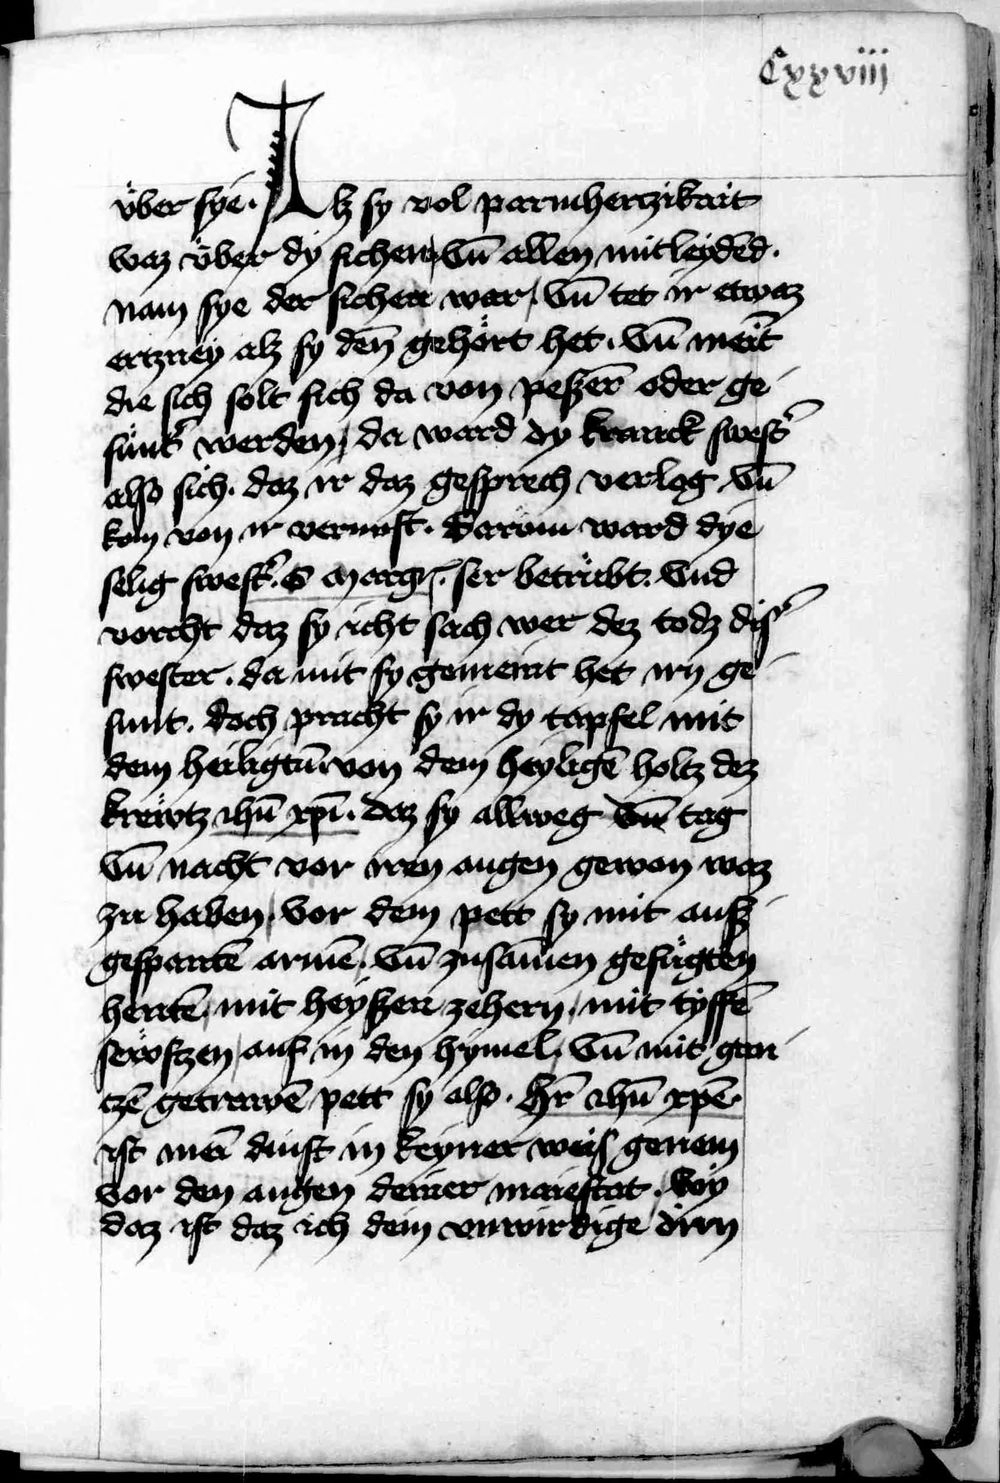 Cxxviii
v̈ber sye. Alz sy vol parmhertzikait
waz v̈ber dy sichen, vn̄ allen mitleydēd.
nam sye der sichen war, vn̄ tet ir etwaz
ertzney alz sy den̄ gehört het. vn̄ meīt
die sich solt sich da von peßern̄ oder ge
sünt̉ werden, da ward dy kranck swest̉
also sich. daz ir daz gesprech verlog vn̄
kom von ir vernuft. Darüm ward dye
selig swest̉. S marg̉. ser betrübt. Vnd
vorcht daz sy icht sach wer dez todz dis̉
swester. da mit sy gemeint het irn ge
sunt. doch pracht sy ir dy tapfel mit
dem heiligtū von dem heyligē holtz dez
krewtz ihū xpī. daz sy allweg vn̄ tag
vn̄ nacht vor iren augen gewon waz
zu haben, vor dem pett sy mit auß
gespantē armē, vn̄ zusam̄en gefügten
hentē, mit heyßen zehern, mit tyffē
sewftzen, auf in den hymel, vn̄ mit gan
tzē getrawē pett sy also. Hr̄ ihū xpē.
ist mei̅ dinst in keyner weis genem
vor den augen deiner maiestat, Wy
daz ist daz ich dein vnwirdige dirn